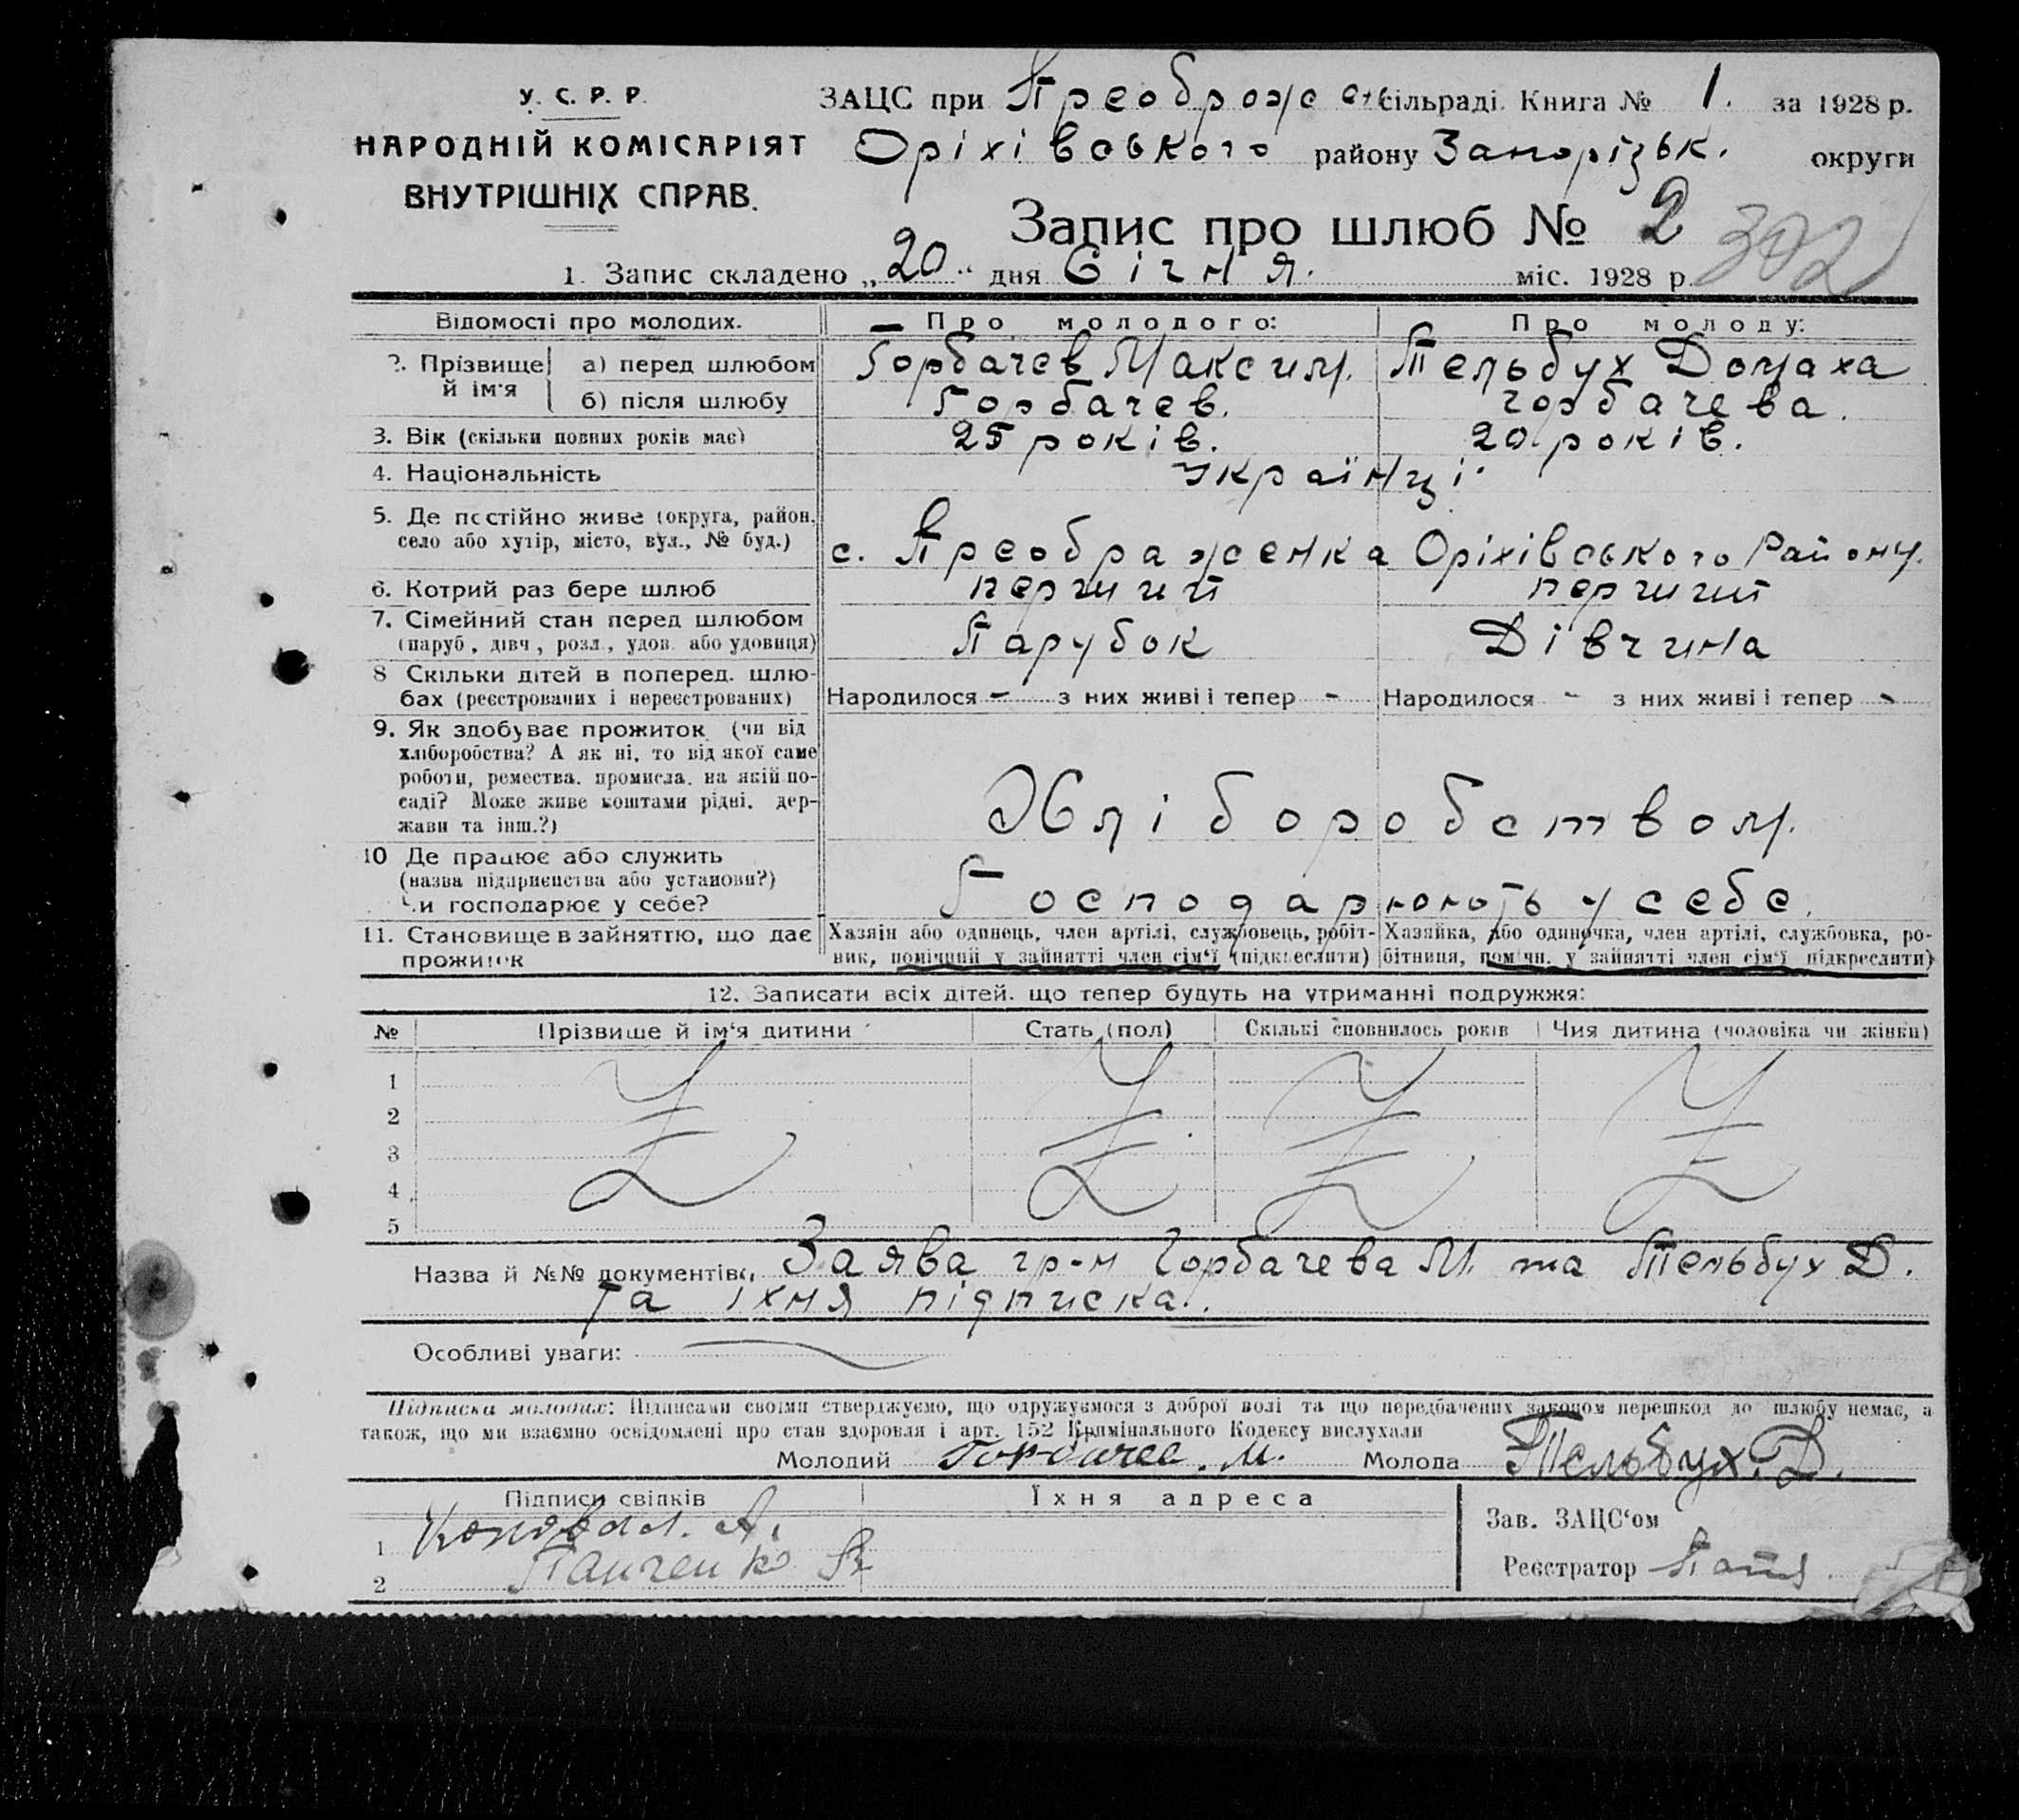 У. С. Р. Р.
НАРОДНІЙ КОМІСАРІЯТ
ВНУТРІШНІХ СПРАВ.
ЗАЦС при Преображен сільраді. Книга № 1. за 1928 р.
Оріхівського району Запорізьк. округи
Запис про шлюб № 2 302
1. Запис складено „20“ дня Січня. міс. 1928 р.
Відомості про молодих. Про молодого: Про молоду:
2. Прізвище й ім'я а) перед шлюбом Горбачев Максим. Тельбух Домаха
б) після шлюбу Горбачев. Горбачева.
3. Вік (скільки повних років має) 25 років. 20 років.
4. Національність Українці
5. Де постійно живе (округа, район, село або хутір, місто, вул., № буд.) с. Преображенка Оріхівського Району.
6. Котрий раз бере шлюб перший перший
7. Сімейний стан перед шлюбом (паруб., дівч., розл., удов. або удовиця) Парубок Дівчина
8 Скільки дітей в поперед. шлюбах (реєстрованих і нереєстрованих) Народилося – з них живі і тепер – Народилося – з них живі і тепер –
9. Як здобуває прожиток (чи від
хліборобства? А як ні, то від якої саме
роботи, ремества, промисла, на якій по-
саді? Може живе коштами рідні, дер-
жави та інш.?) Хліборобством.
10 Де працює або служить
(назва підприємства або установи?)
Чи господарює у себе? Господарюють у себе.
11. Становище в зайняттю, що дає прожиток
Хазяїн або одинець, член артілі, службовець, робіт-
ник, помічний у зайнятті член сім'ї (підкреслити)
Хазяйка, або одиночка, член артілі, службовка, ро-
бітниця, помічн. у зайнятті член сім'ї підкреслити)
12. Записати всіх дітей, що тепер будуть на утриманні подружжя:
№ Прізвище й ім'я дитини Стать (пол) Скількі сповнилось років Чия дитина (чоловіка чи жінки)
1
2
3
4
5
Назва й №№ документів: Заява гр-н Горбачева М. та Тельбух Д.
та їхня підписка.
Особливі уваги:
Підписка молодих: Підписами своїми стверджуємо, що одружуємося з доброї волі та що передбачених законом перешкод до шлюбу немає, а
також, що ми взаємно освідомлені про стан здоровля і арт. 152 Кримінального Кодексу вислухали
Молодий Горбачев. М. Молода Тельбух. Д.
Підписи свідків Їхня адреса
1 Коновал. А.
2 Панченко
Зав. ЗАЦС'ом
Реєстратор